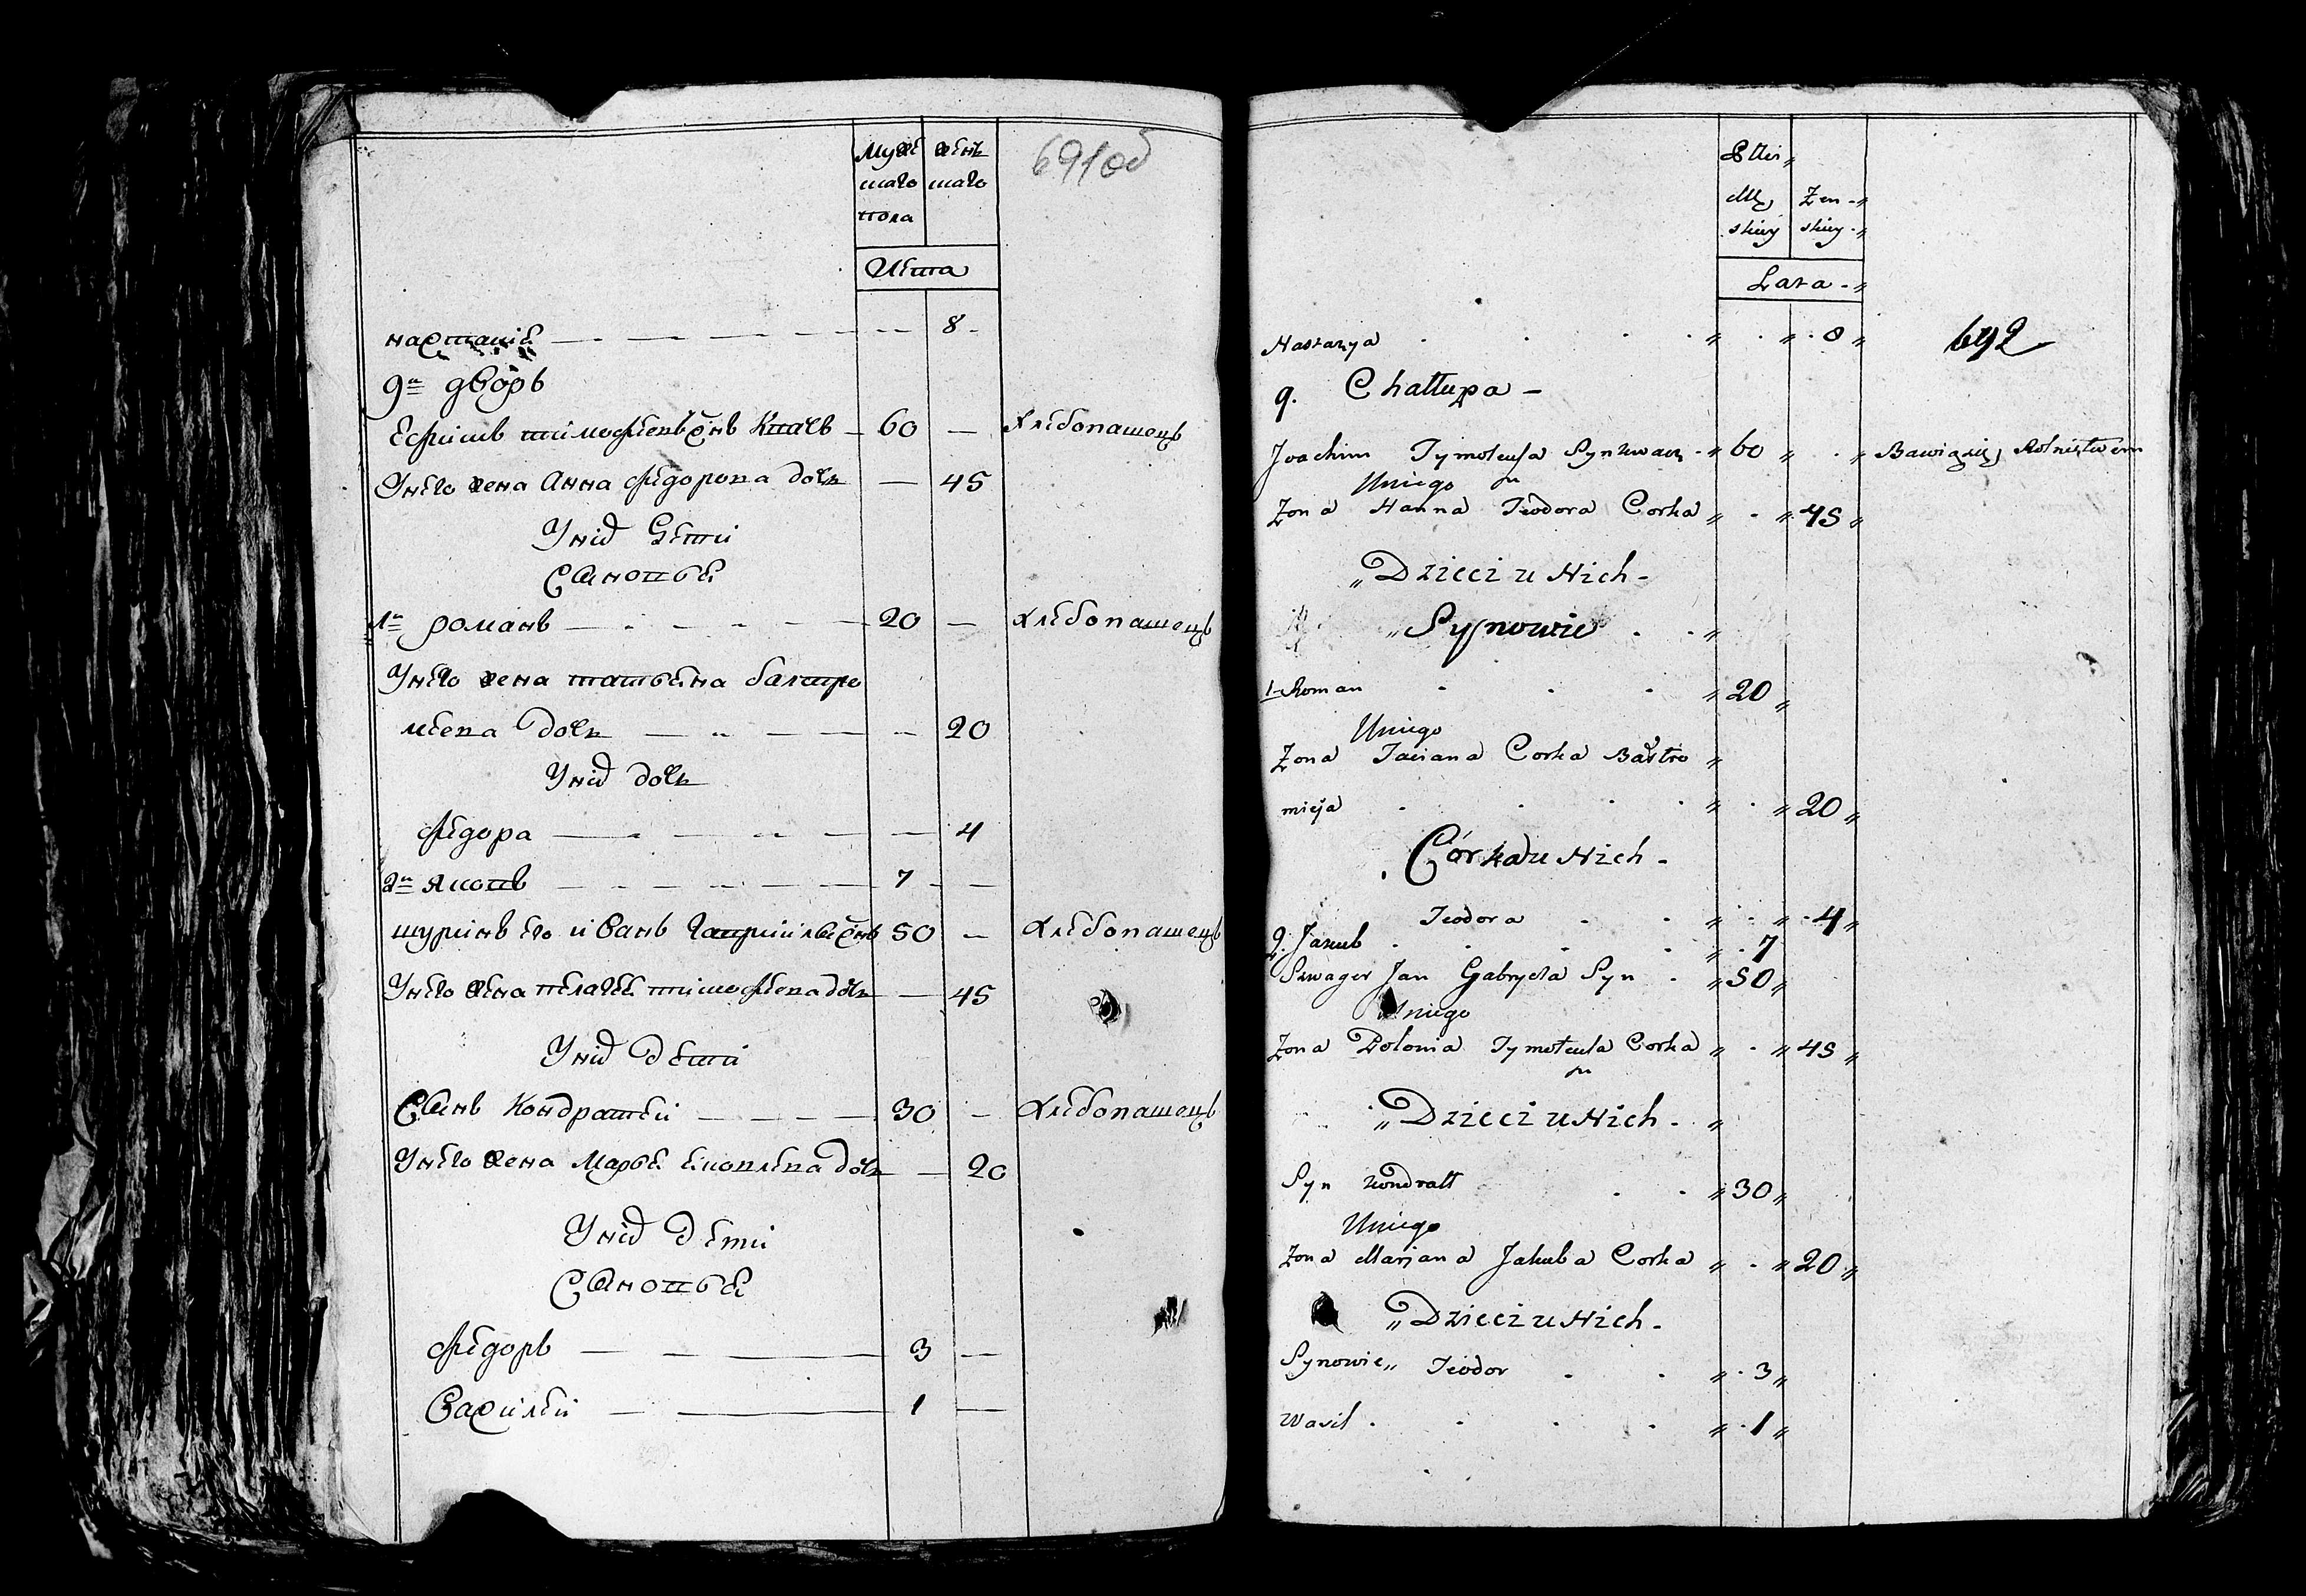 Муже женъ
скаго скаго
пола
691об
Лета
настасiя — — — 8
9й дворъ
Ефимъ тимофеевъ снъ Кнасъ — 60 — хлебопашецъ
Унего жена Анна федорова дочь — 45
Унiхъ Дети
Сыновья
1й романъ — — — 20 — хлебопашецъ
Унего жена татьяна балтро
меева дочь — — — 20
Унiхъ дочь
федора — — — 4
2й яковъ — — — 7 — —
шуринъ его иванъ гавриiлъ снъ 50 — хлебопашецъ
Унего жена пелагея тимофеева дочь — 45
Унiхъ дети
Сынъ Кондратей — — — 30 — хлебопашецъ
Унего жена Марья яковлева дочь — 20
Унiхъ дети
Сыновья
федоръ — — — 3 —
Василей — — — 1 —
Płci „
Mę Zen - „
skiey skiey - „
Lata - „
Nastazya . . . . „ . „ . 8 „
692
9. Chałłupa -
Joachim Tymoteusza Syn Kwacz . „ 60 „ . „ Bawiący się Rolnictwem
Uniego
Zona Hanna Teodora Corka „ . „ 45 „
„ Dzieci u Nich -
„ Synowie . . „
1- Roman . . . „ 20 „
Uniego
Zona Taciana Corka Bastro „
mieja . . . . „ . „ 20 „
Córka u Nich -
Teodora . . „ . „ . 4 „
2. Jakub . . . . „ . 7
Szwager Jan Gabryela Syn . „ 50 „
Uniego
Zona Polonia Tymoteusza Corka „ . „ 45 „
„ Dzieci u Nich - „
Syn Kondratt . . „ 30 „
Uniego
Zona Marjana Jakuba Corka „ . „ 20 „
„ Dzieci u Nich -
Synowie „ Teodor . . „ . 3 „
Wasil . . . . „ . 1 „